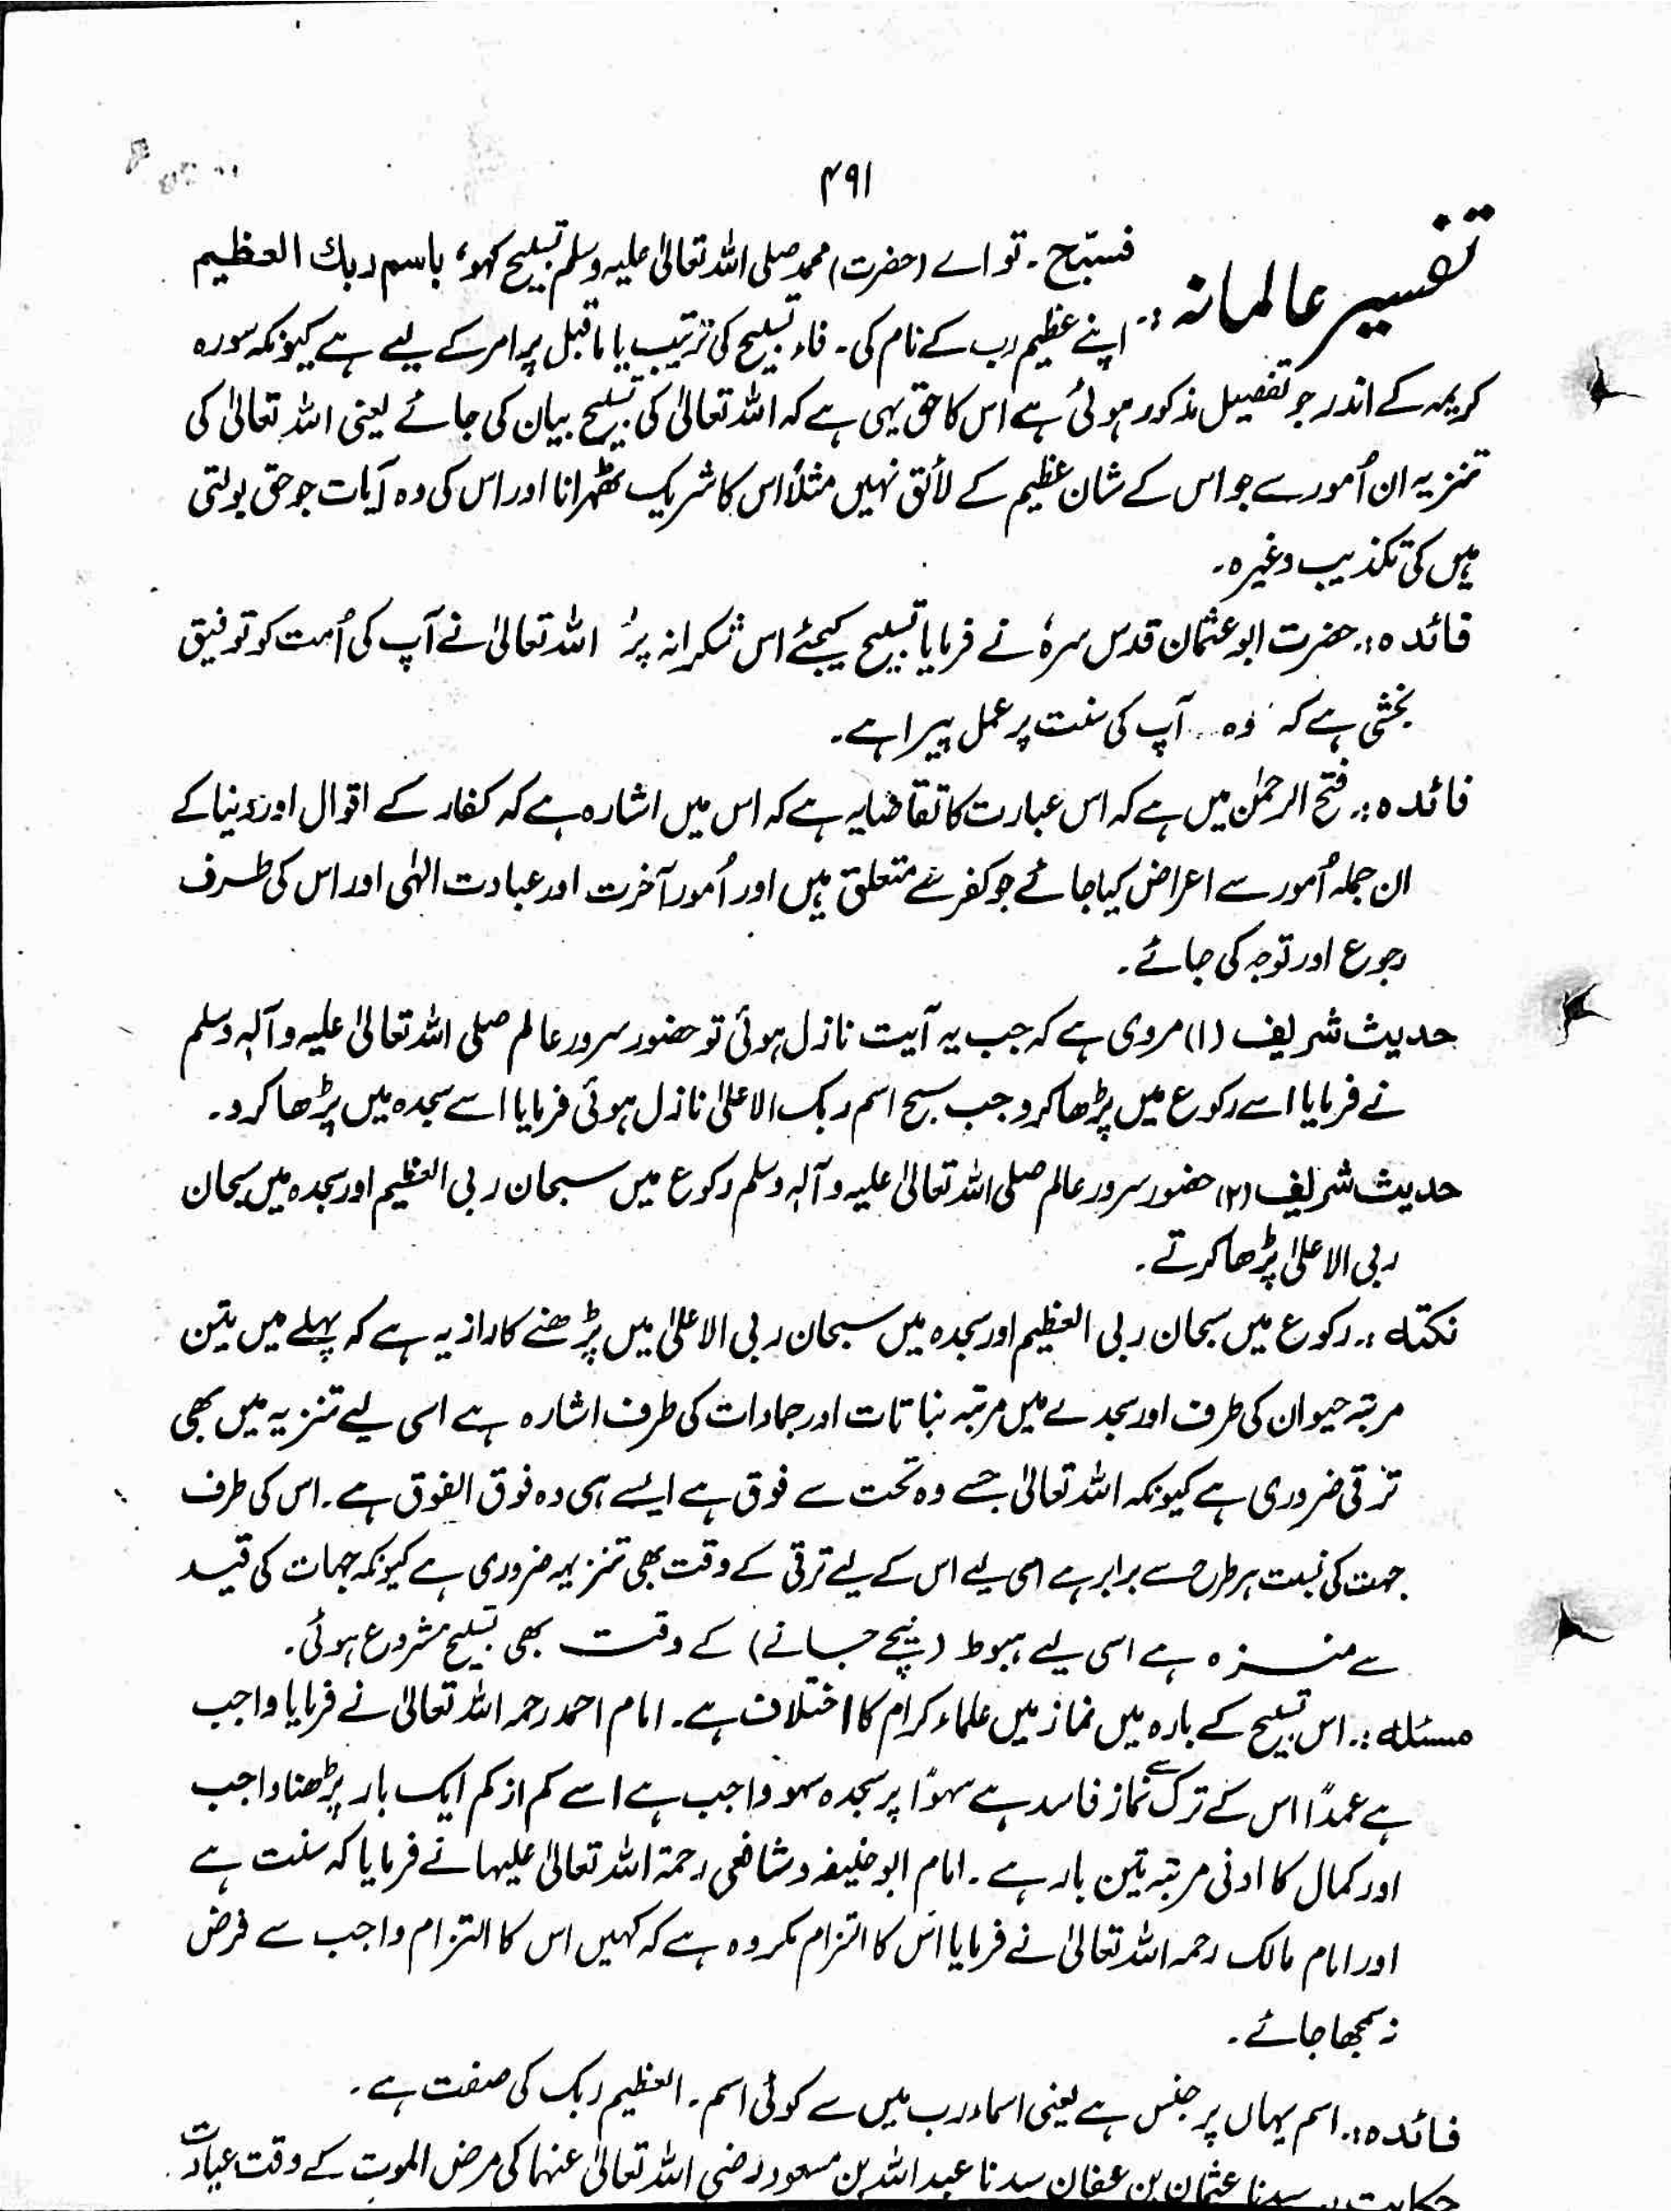 ۴۹۱
تفسیر عالمانہ :۔ فسبّح ۔ تو اے (حضرت) محمد صلی اللہ تعالیٰ علیہ وسلم تسبیح کہو، باسم ربك العظیم
اپنے عظیم رب کے نام کی ۔ فاء تسبیح کی ترتیب یا ماقبل پر امر کے لیے ہے کیونکہ سورہ
کریمہ کے اندر جو تفصیل مذکور ہوئی ہے اس کا حق یہی ہے کہ اللہ تعالیٰ کی تسبیح بیان کی جائے یعنی اللہ تعالیٰ کی
تنزیہ ان اُمور سے جو اس کے شان عظیم کے لائق نہیں مثلاً اس کا شریک ٹھہرانا اور اس کی وہ آیات جو حق بولتی
ہیں کی تکذیب وغیرہ۔
فائدہ :۔ حضرت ابو عثمان قدس سرہٗ نے فرمایا تسبیح کیجئے اس شکرانہ پر اللہ تعالیٰ نے آپ کی اُمت کو توفیق
بخشی ہے کہ وہ آپ کی سنت پر عمل پیرا ہے۔
فائدہ :۔ فتح الرحمٰن میں ہے کہ اس عبارت کا تقاضا یہ ہے کہ اس میں اشارہ ہے کہ کفار کے اقوال اور دنیا کے
ان جملہ اُمور سے اعراض کیا جائے جو کفر سے متعلق ہیں اور اُمور آخرت اور عبادت الٰہی اور اس کی طرف
رجوع اور توجہ کی جائے ۔
حدیث شریف (۱) مروی ہے کہ جب یہ آیت نازل ہوئی تو حضور سرور عالم صلی اللہ تعالیٰ علیہ وآلہ وسلم
نے فرمایا اسے رکوع میں پڑھا کرو جب سبح اسم ربک الاعلیٰ نازل ہوئی فرمایا اسے سجدہ میں پڑھا کرو۔
حدیث شریف (۲) حضور سرور عالم صلی اللہ تعالیٰ علیہ وآلہ وسلم رکوع میں سبحان ربی العظیم اور سجدہ میں سبحان
ربی الاعلیٰ پڑھا کرتے ۔
نکتہ :۔ رکوع میں سبحان ربی العظیم اور سجدہ میں سبحان ربی الاعلیٰ میں پڑھنے کا راز یہ ہے کہ پہلے میں تین
مرتبہ حیوان کی طرف اور سجدے میں مرتبہ نباتات اور جمادات کی طرف اشارہ ہے اسی لیے تنزیہ میں بھی
ترقی ضروری ہے کیونکہ اللہ تعالیٰ جیسے وہ تحت سے فوق ہے ایسے ہی وہ فوق الفوق ہے ۔ اس کی طرف
جہت کی نسبت ہر طرح سے برابر ہے اسی لیے اس کے لیے ترقی کے وقت بھی تنزیہہ ضروری ہے کیونکہ جہات کی قید
سے منزہ ہے اسی لیے ہبوط (نیچے جانے) کے وقت بھی تسبیح مشروع ہوئی۔
مسئلہ :۔ اس تسبیح کے بارہ میں نماز میں علماء کرام کا اختلاف ہے ۔ امام احمد رحمہ اللہ تعالیٰ نے فرمایا واجب
ہے عمداً اس کے ترک سے نماز فاسد ہے سہواً پر سجدہ سہو واجب ہے اسے کم از کم ایک بار پڑھنا واجب
اور کمال کا ادنی مرتبہ تین بار ہے ۔ امام ابو حنیفہ و شافعی رحمۃ اللہ تعالیٰ علیہما نے فرمایا کہ سنت ہے
اور امام مالک رحمہ اللہ تعالیٰ نے فرمایا اس کا التزام مکروہ ہے کہ کہیں اس کا التزام واجب سے فرض
نہ سمجھا جائے ۔
فائدہ :۔ اسم یہاں پر جنس ہے یعنی اسماء رب میں سے کوئی اسم ۔ العظیم ربک کی صفت ہے ۔
حکایت :۔ سیدنا عثمان بن عفان سیدنا عبداللہ بن مسعود رضی اللہ تعالیٰ عنہما کی مرض الموت کے وقت عیادت